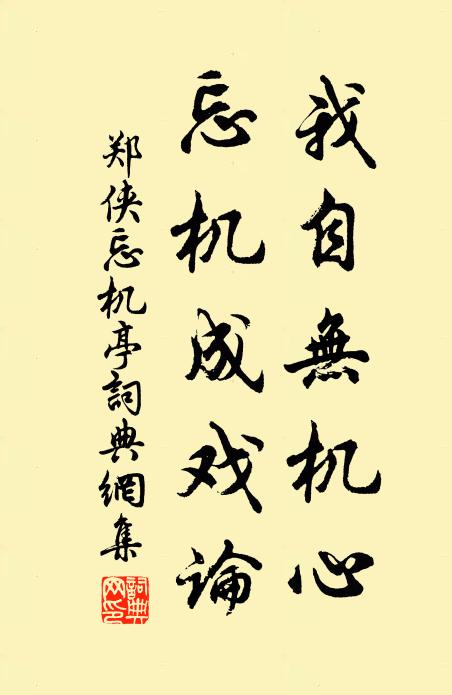 我自無机心
忘机成戏论
郑侠忘机亭詞典網集
詞典网印